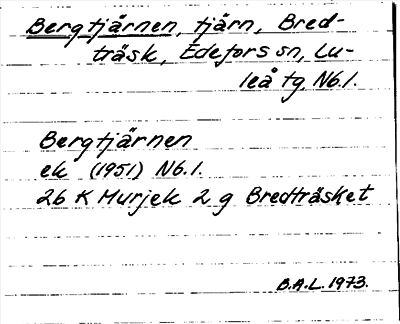 Bergtjärnen, tjärn, Bred-
träsk, Edefors sn, Lu-
leå tg, Nb.l.
Bergtjärnen
ek (1951) Nb.l.
26 K Murjek 2 g Bredträsket
B.A.L 1973.